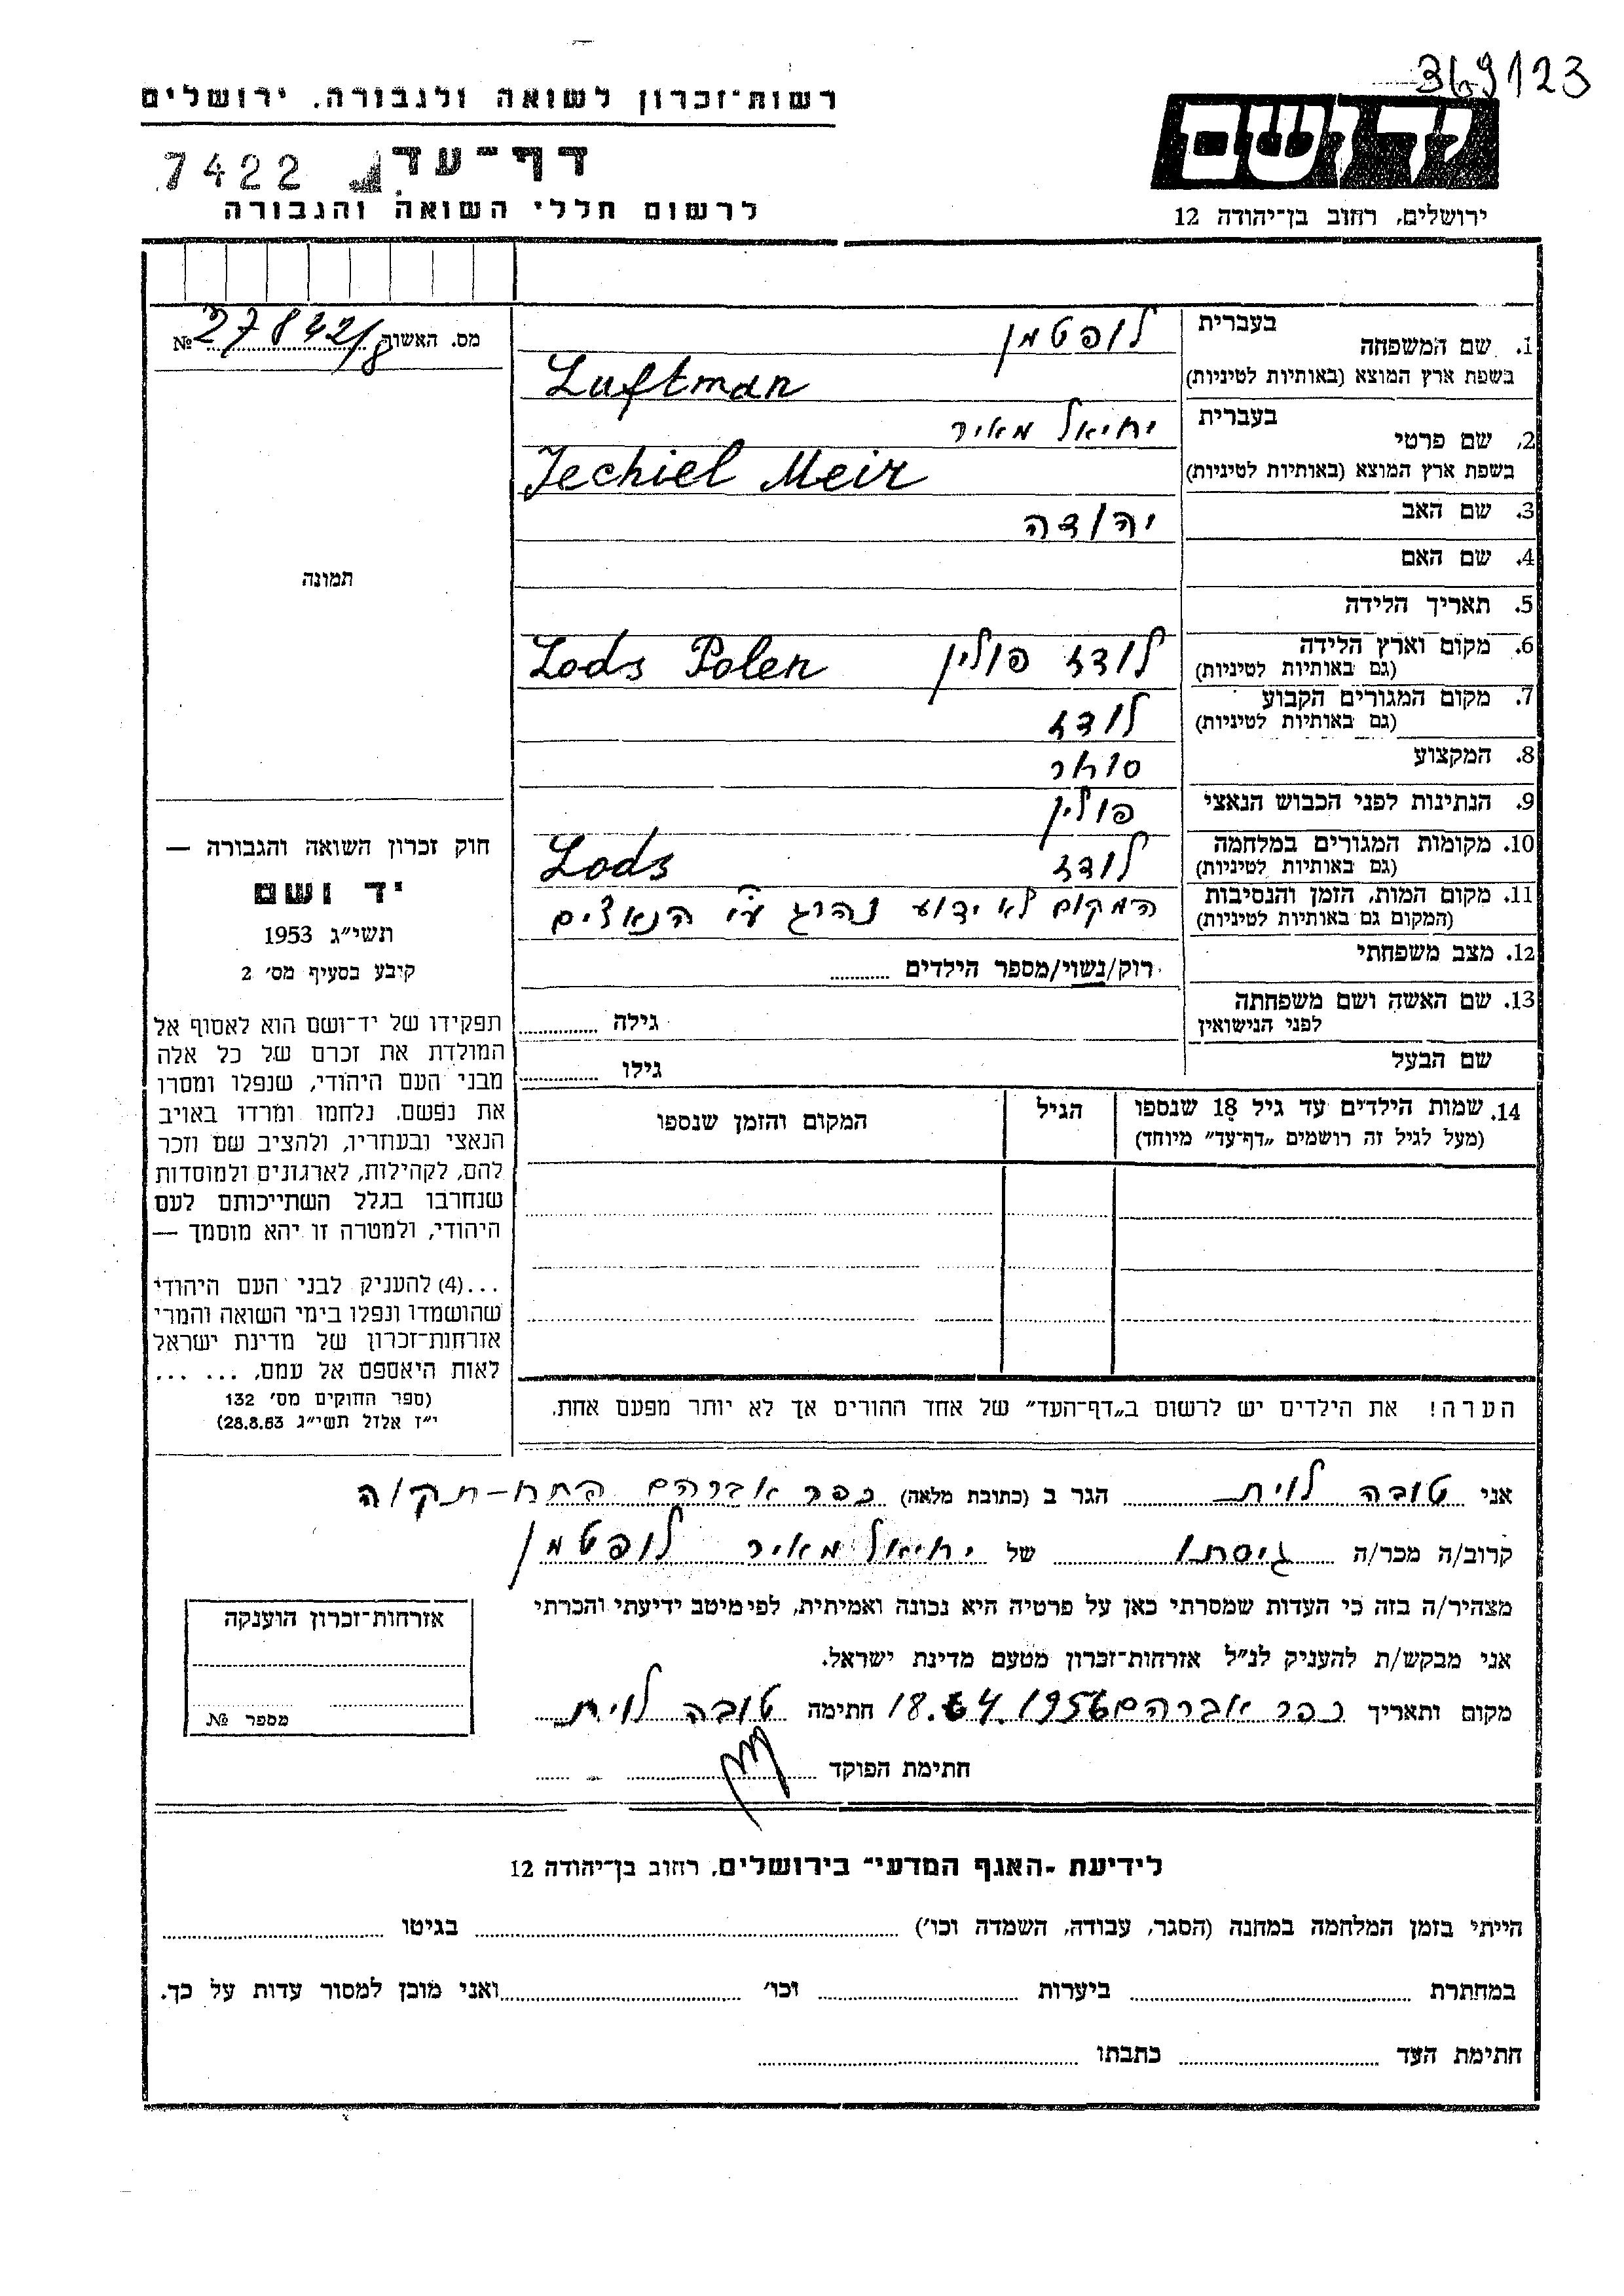 369123
רשות־זכרון לשואה ולגבורה. ירושלים
יד ושם
דף־עד
7422
לרשום חללי השואה והגבורה
ירושלים, רחוב בן־יהודה 12
מס. האשור № 27842/8
1. שם המשפחה
בעברית לופטמן
בשפת ארץ המוצא (באותיות לטיניות) Luftman
2. שם פרטי
בעברית יחיאל מאיר
בשפת ארץ המוצא (באותיות לטיניות) Jechiel Meir
3. שם האב יהודה
4. שם האם
תמונה
5. תאריך הלידה
6. מקום וארץ הלידה
(גם באותיות לטיניות) לודז פולין Lods Polen
7. מקום המגורים הקבוע
(גם באותיות לטיניות) לודז
8. המקצוע סוחר
9. הנתינות לפני הכבוש הנאצי פולין
10. מקומות המגורים במלחמה
(גם באותיות לטיניות) לודז Lods
11. מקום המות, הזמן והנסיבות
(המקום גם באותיות לטיניות) המקום לא ידוע נהרג ע״י הנאצים
12. מצב משפחתי רוק/נשוי/מספר הילדים
13. שם האשה ושם משפחתה
לפני הנישואין גילה
שם הבעל גילו
14. שמות הילדים עד גיל 18 שנספו
(מעל לגיל זה רושמים „דף־עד״ מיוחד)
הגיל
המקום והזמן שנספו
הערה! את הילדים יש לרשום ב„דף־העד״ של אחד ההורים אך לא יותר מפעם אחת.
חוק זכרון השואה והגבורה —
יד ושם
תשי״ג 1953
קיבע בסעיף מס׳ 2
תפקידו של יד־ושם הוא לאסוף אל
המולדת את זכרם של כל אלה
מבני העם היהודי, שנפלו ומסרו
את נפשם, נלחמו ומרדו באויב
הנאצי ובעוזריו, ולהציב שם וזכר
להם, לקהילות, לארגונים ולמוסדות
שנחרבו בגלל השתייכותם לעם
היהודי, ולמטרה זו יהא מוסמך —
...(4) להעניק לבני העם היהודי
שהושמדו ונפלו בימי השואה והמרי
אזרחות־זכרון של מדינת ישראל
לאות היאספם אל עמם, ... ...
(ספר החוקים מס׳ 132
י״ז אלול תשי״ג 28.8.53)
אני טובה לוית הגר ב (כתובת מלאה) כפר אברהם פתח-תקוה
קרוב/ה מכר/ה גיסתו של יחיאל מאיר לופטמן
מצהיר/ה בזה כי העדות שמסרתי כאן על פרטיה היא נכונה ואמיתית, לפי מיטב ידיעתי והכרתי
אני מבקש/ת להעניק לנ״ל אזרחות־זכרון מטעם מדינת ישראל.
מקום ותאריך כפר אברהם 18.4.1956 חתימה טובה לוית
חתימת הפוקד
אזרחות־זכרון הוענקה
מספר №
לידיעת „האגף המדעי״ בירושלים, רחוב בן־יהודה 12
הייתי בזמן המלחמה במחנה (הסגר, עבודה, השמדה וכו׳) בגיטו
במחתרת ביערות וכו׳ ואני מוכן למסור עדות על כך.
חתימת העד כתבתו